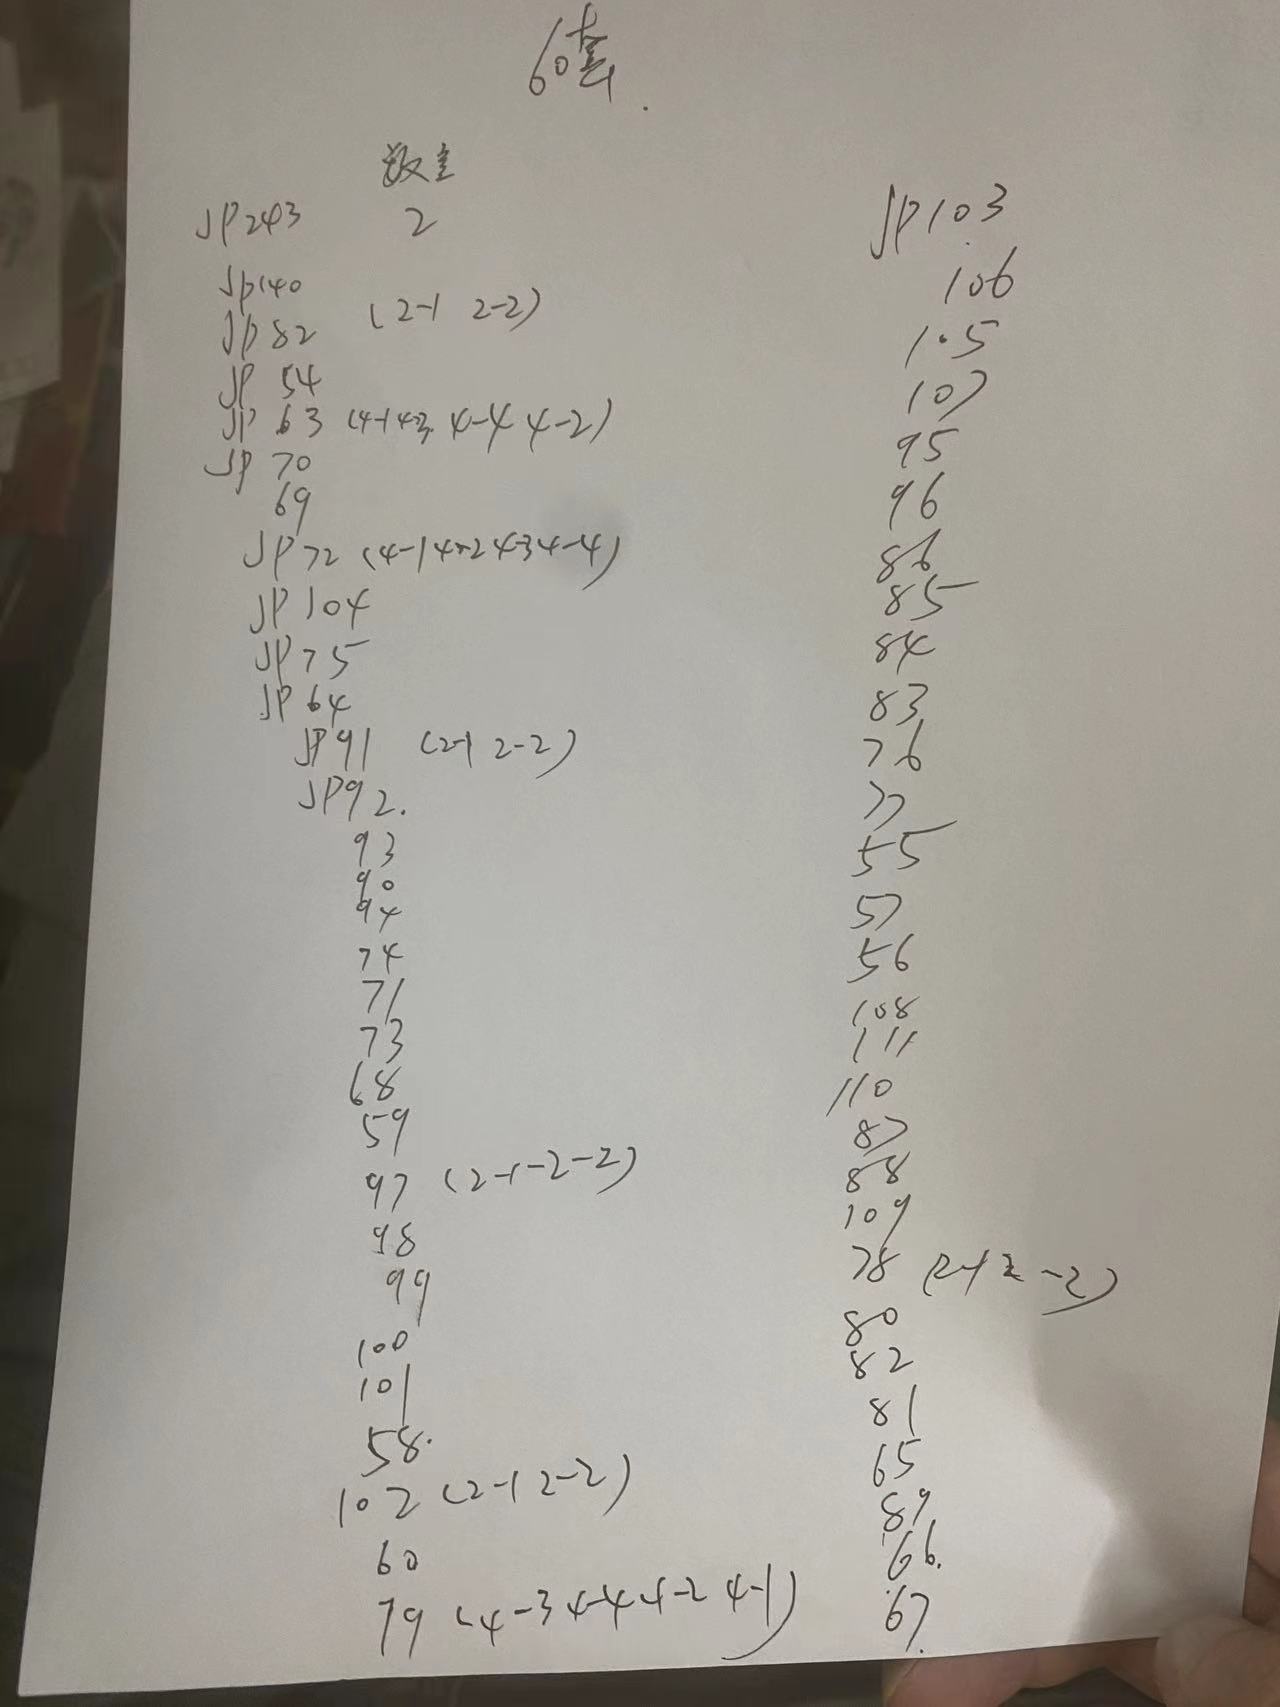 60套.
数量
JP243 2
JP140
JP82 (2-1 2-2)
JP 54
JP 63 (4-1 4-3 4-4 4-2)
JP 70
69
JP72 (4-1 4-2 4-3 4-4)
JP104
JP75
JP64
JP91 (2-1 2-2)
JP92.
93
90
94
74
71
73
68
59
97 (2-1-2-2)
98
99
100
101
58.
102 (2-1 2-2)
60
79 (4-3 4-4 4-2 4-1)
JP103
106
105
107
95
96
86
85
84
83
76
77
55
57
56
108
111
110
87
88
109
78 (2-1 2-2)
80
82
81
65
89
66.
67.